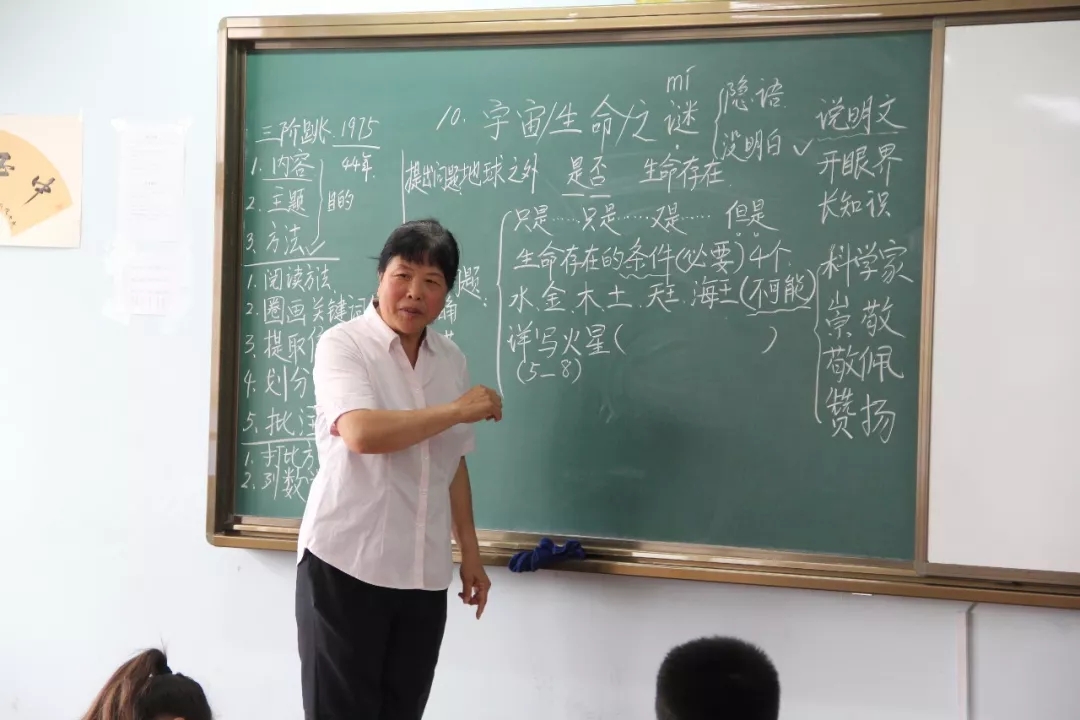 三阶跳. 1975
1. 内容 44年.
2. 主题 目的
3. 方法 ✓
1. 阅读方法.
2. 圈画关键词
3. 提取
4. 划分
5. 批注
1. 打比方
2. 列数
mí
10. 宇宙/生命/之谜
隐语
没明白 ✓
提出问题 地球之外 是否 生命存在
只是……只是……又是…… 但是
生命存在的条件(必要)4个.
水.金.木土.天王.海王(不可能)
详写火星( )
(5—8)
题.
说明文
开眼界
长知识
科学家
崇敬
敬佩
赞扬